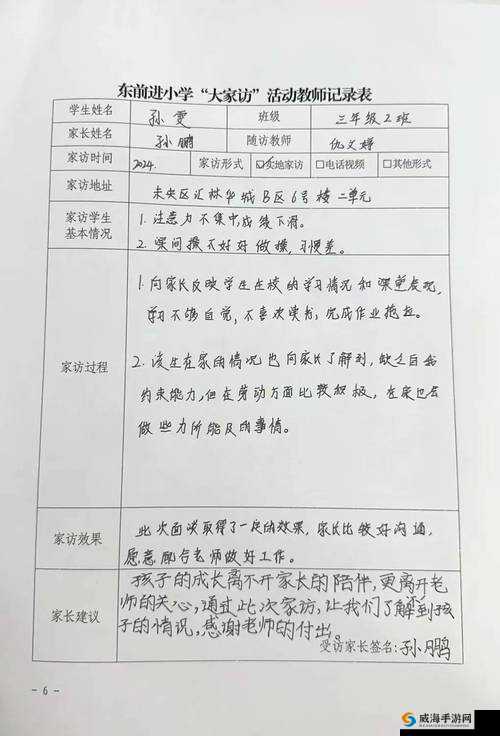 东前进小学“大家访”活动教师记录表
学生姓名 孙雯 班级 三年级2班
家长姓名 孙鹏 随访教师 仇文婷
家访时间 2024. 家访形式 ☑实地家访 □电话视频 □其他形式
家访地址 未央区汇林华城B区6号楼二单元
家访学生基本情况
1. 注意力不集中,成绩下滑。
2. 课间操不好好做操,习惯差。
家访过程
1. 向家长反映学生在校的学习情况和课堂表现,
学习不够自觉,不喜欢读书,完成作业拖拉。
2. 该生在家的情况也向家长了解到,缺乏自我
约束能力,但在劳动方面比较积极,在家也会
做些力所能及的事情。
家访效果
此次面谈取得了一定的效果,家长比较好沟通,
愿意配合老师做好工作。
家长建议
孩子的成长离不开家长的陪伴,更离开老
师的关心,通过此次家访,让我们了解到孩
子的情况,感谢老师的付出。
受访家长签名:孙鹏
- 6 -
威海手游网